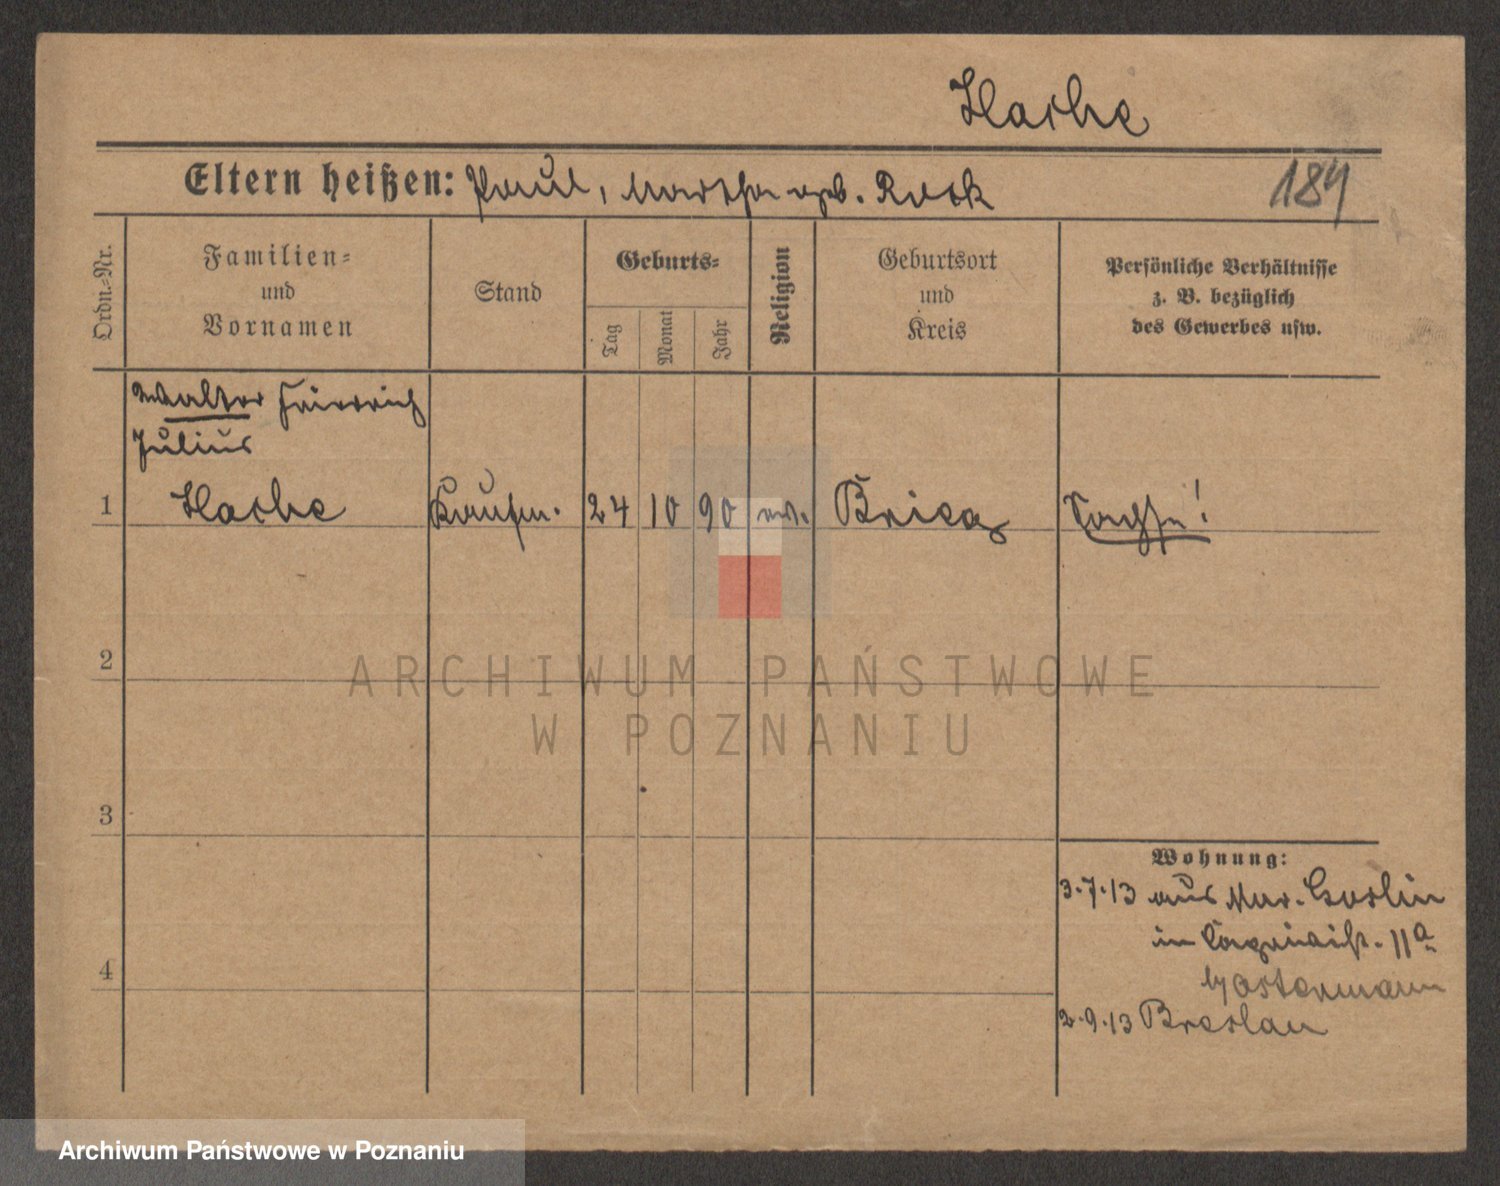 Hache
Eltern heißen: Paul, Martha geb. Rock
184
Ordn.-Nr.
Familien-
und
Vornamen
Stand
Geburts-
Tag
Monat
Jahr
Religion
Geburtsort
und
Kreis
Persönliche Verhältnisse
z. B. bezüglich
des Gewerbes usw.
Walter Friedrich
Julius
1 Hache Kaufm. 24 10 90 ev. Brieg
2
3
4
Wohnung:
3.7.13 aus Mur. Goslin
in 11a
2.9.13 Breslau
ARCHIWUM PAŃSTWOWE
W POZNANIU
Archiwum Państwowe w Poznaniu